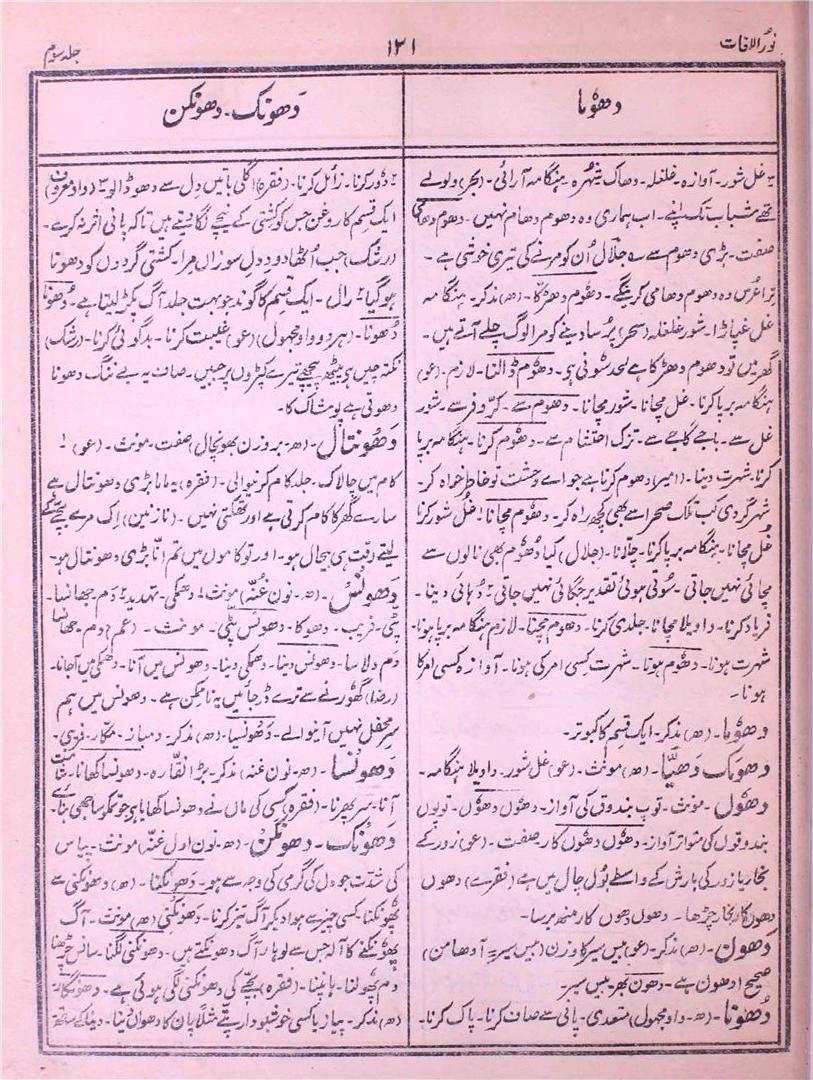 نورُ اللغات
۱۳۱
جلد سوم
دھُوما
ـ غل شور۔ آوازہ۔ غلغلہ۔ دھاک شہُرہ۔ ہنگامہ آرائی۔ (بحر) ولولے
تھے شباب تک اپنے۔ اب ہماری وہ دھوم دھام نہیں۔ دھوم دھامی
صفت۔ بڑی دھوم سے ؎ جلال اُن کو مرنے کی تیری خوشی ہے۔
ترا عُرس وہ دھوم دھامی کرینگے۔ دھُوم دھڑکا۔ (ھ) مذکر۔ ہنگامہ
غل غپاڑا۔ شور غلغلہ (سحر) پُرسا دینے کو مرا لوگ چلے آتے ہیں۔
گھر میں تو دھوم دھڑکا ہے لحد سُونی ہے۔ دھُوم ڈالنا۔ لازم۔ (عو)
ہنگامہ برپا کرنا۔ غل مچانا۔ شور مچانا۔ دھوم سے۔ کرّ و فر سے۔ شور
غل سے۔ باجے گاجے سے۔ تزک احتشام سے۔ دھُوم کرنا۔ ہنگامہ برپا
کرنا۔ شہرت دینا۔ (امیر) دھوم کرتا ہے جو اے وحشت تو خاطر خواہ کر۔
شہر گردی کب تلک صحرا سے بھی کچھ راہ کر۔ دھُوم مچانا۔ غُل شور کرنا
غل مچانا۔ ہنگامہ برپا کرنا۔ چلّانا۔ (جلال) کیا دھُوم بھی نالوں سے
مچائی نہیں جاتی۔ سُوتی ہوئی تقدیر جگائی نہیں جاتی ؎ دُہائی دینا۔
فریاد کرنا۔ واویلا مچانا۔ جلدی کرنا۔ دھوم مچنا۔ لازم ہنگامہ برپا ہونا۔
شہرت ہونا۔ دھُوم ہونا۔ شہرت کسی امر کی ہونا۔ آوازہ کسی امر کا
ہونا۔
دھُوما۔ (ھ) مذکر۔ ایک قسم کا کبوتر۔
دھُومک دھیّا۔ (ھ) مونث۔ (عو) غل شور۔ واویلا ہنگامہ۔
دھُوں۔ مونث۔ توپ بندوق کی آواز۔ دھُوں دھُوں۔ توپوں
بندوقوں کی متواتر آواز۔ دھُوں دھُوں کار۔ صفت۔ (عو) زور کے
بخار یا زور کی بارش کے واسطے بول چال میں ہے (فقرے) دھوں
دھوں کار بخار چڑھا۔ دھوں دھوں کار منھ برسا۔
دھون۔ (ھ) مذکر۔ (عو) بیس سیر کا وزن (بیس سیر۔ آدھا من)
صحیح ادھون ہے۔ دھون بھر۔ بیس سیر۔
دُھونا۔ (ھ۔ واو مجہول) متعدی۔ پانی سے صاف کرنا۔ پاک کرنا۔
دَھونک۔ دھونکن
ـ دُور کرنا۔ زائل کرنا۔ (فقرہ) اگلی باتیں دل سے دھو ڈالو۔ (واو معروف)
ایک قسم کا روغن جس کو کشتی کے نیچے لگا دیتے ہیں تاکہ پانی اثر نہ کرے۔
(رشک) جب اُٹھا دودِ دلِ سوزاں مرا۔ کشتی گردوں کو دھونا
ہو گیا ؎ رال۔ ایک قسم کا گوند جو بہت جلد آگ پکڑ لیتا ہے۔ دُھونا
دُھونا۔ (ہر دو واو مجہول) (عو) غیبت کرنا۔ بدگوئی کرنا۔ (رشک)
نکتہ چیں ہی بیٹھ پیچھے تیرے کپڑوں پر جبیں۔ صاف یہ بے ننگ دھونا
دھوتی ہے پوشاک کا۔
دَھونتال۔ (ھ۔ بروزن بھونچال) صفت۔ مونث۔ (عو)
کام میں چالاک۔ جلد کام کرنیوالی۔ (فقرہ) یہ ماما بڑی دھونتال ہے
سارے گھر کا کام کرتی ہے اور تھکتی نہیں۔ (نازنین) اک مرے بچے کے
لیتے وقت ہی بیحال ہو۔ اور تو کاموں میں تم انّا بڑی دھونتال ہو۔
دَھونس۔ (ھ۔ نون غنّہ) مونث۔ دھمکی۔ تہدید ؎ دَم جھانسا۔
پٹی۔ فریب۔ دھوکا۔ دھونس پٹی۔ مونث۔ (عم) دم جھانسا
دَم دلاسا۔ دھونس دینا۔ دھمکی دینا۔ دھونس میں آنا۔ دھمکی میں آجانا۔
(رضا) گھُورنے سے ترے ڈر جائیں یہ ناممکن ہے۔ دھونس میں ہم
سرِ محفل نہیں آنیوالے۔ دَھونسیا۔ (ھ) مذکر۔ دمباز۔ مکّار۔ فریبی۔
دَھونسا۔ (ھ۔ نون غنہ) مذکر۔ بڑا نقارہ۔ دھونسا کھانا۔ شامت
آنا۔ سر پھرنا۔ (فقرہ) کسی کی ماں نے دھونسا کھایا ہی جو تمکو ساجھی بنائے
دَھونک۔ دھونکن۔ (ھ۔ نون اول غنہ) مونث۔ پیاس
کی شدت جو دل کی گرمی کی وجہ سے ہو۔ دھونکنا۔ (ھ) دھونکنی سے
پھُونکنا۔ کسی چیز سے ہوا دیکر آگ تیز کرنا۔ دَھونکنی (ھ) مونث۔ آگ
پھُونکنے کا آلہ جس سے لوہار آگ دھونکتے ہیں۔ دھونکنی لگنا۔ سانس چڑھنا
دم پھُولنا۔ ہانپنا۔ (فقرہ) بچّے کی دھونکنی لگی ہوئی ہے۔ دھونگار
(ھ) مذکر۔ پیاز یا کسی خوشبودار پتے مثلاً پان کا دھواں دینا۔